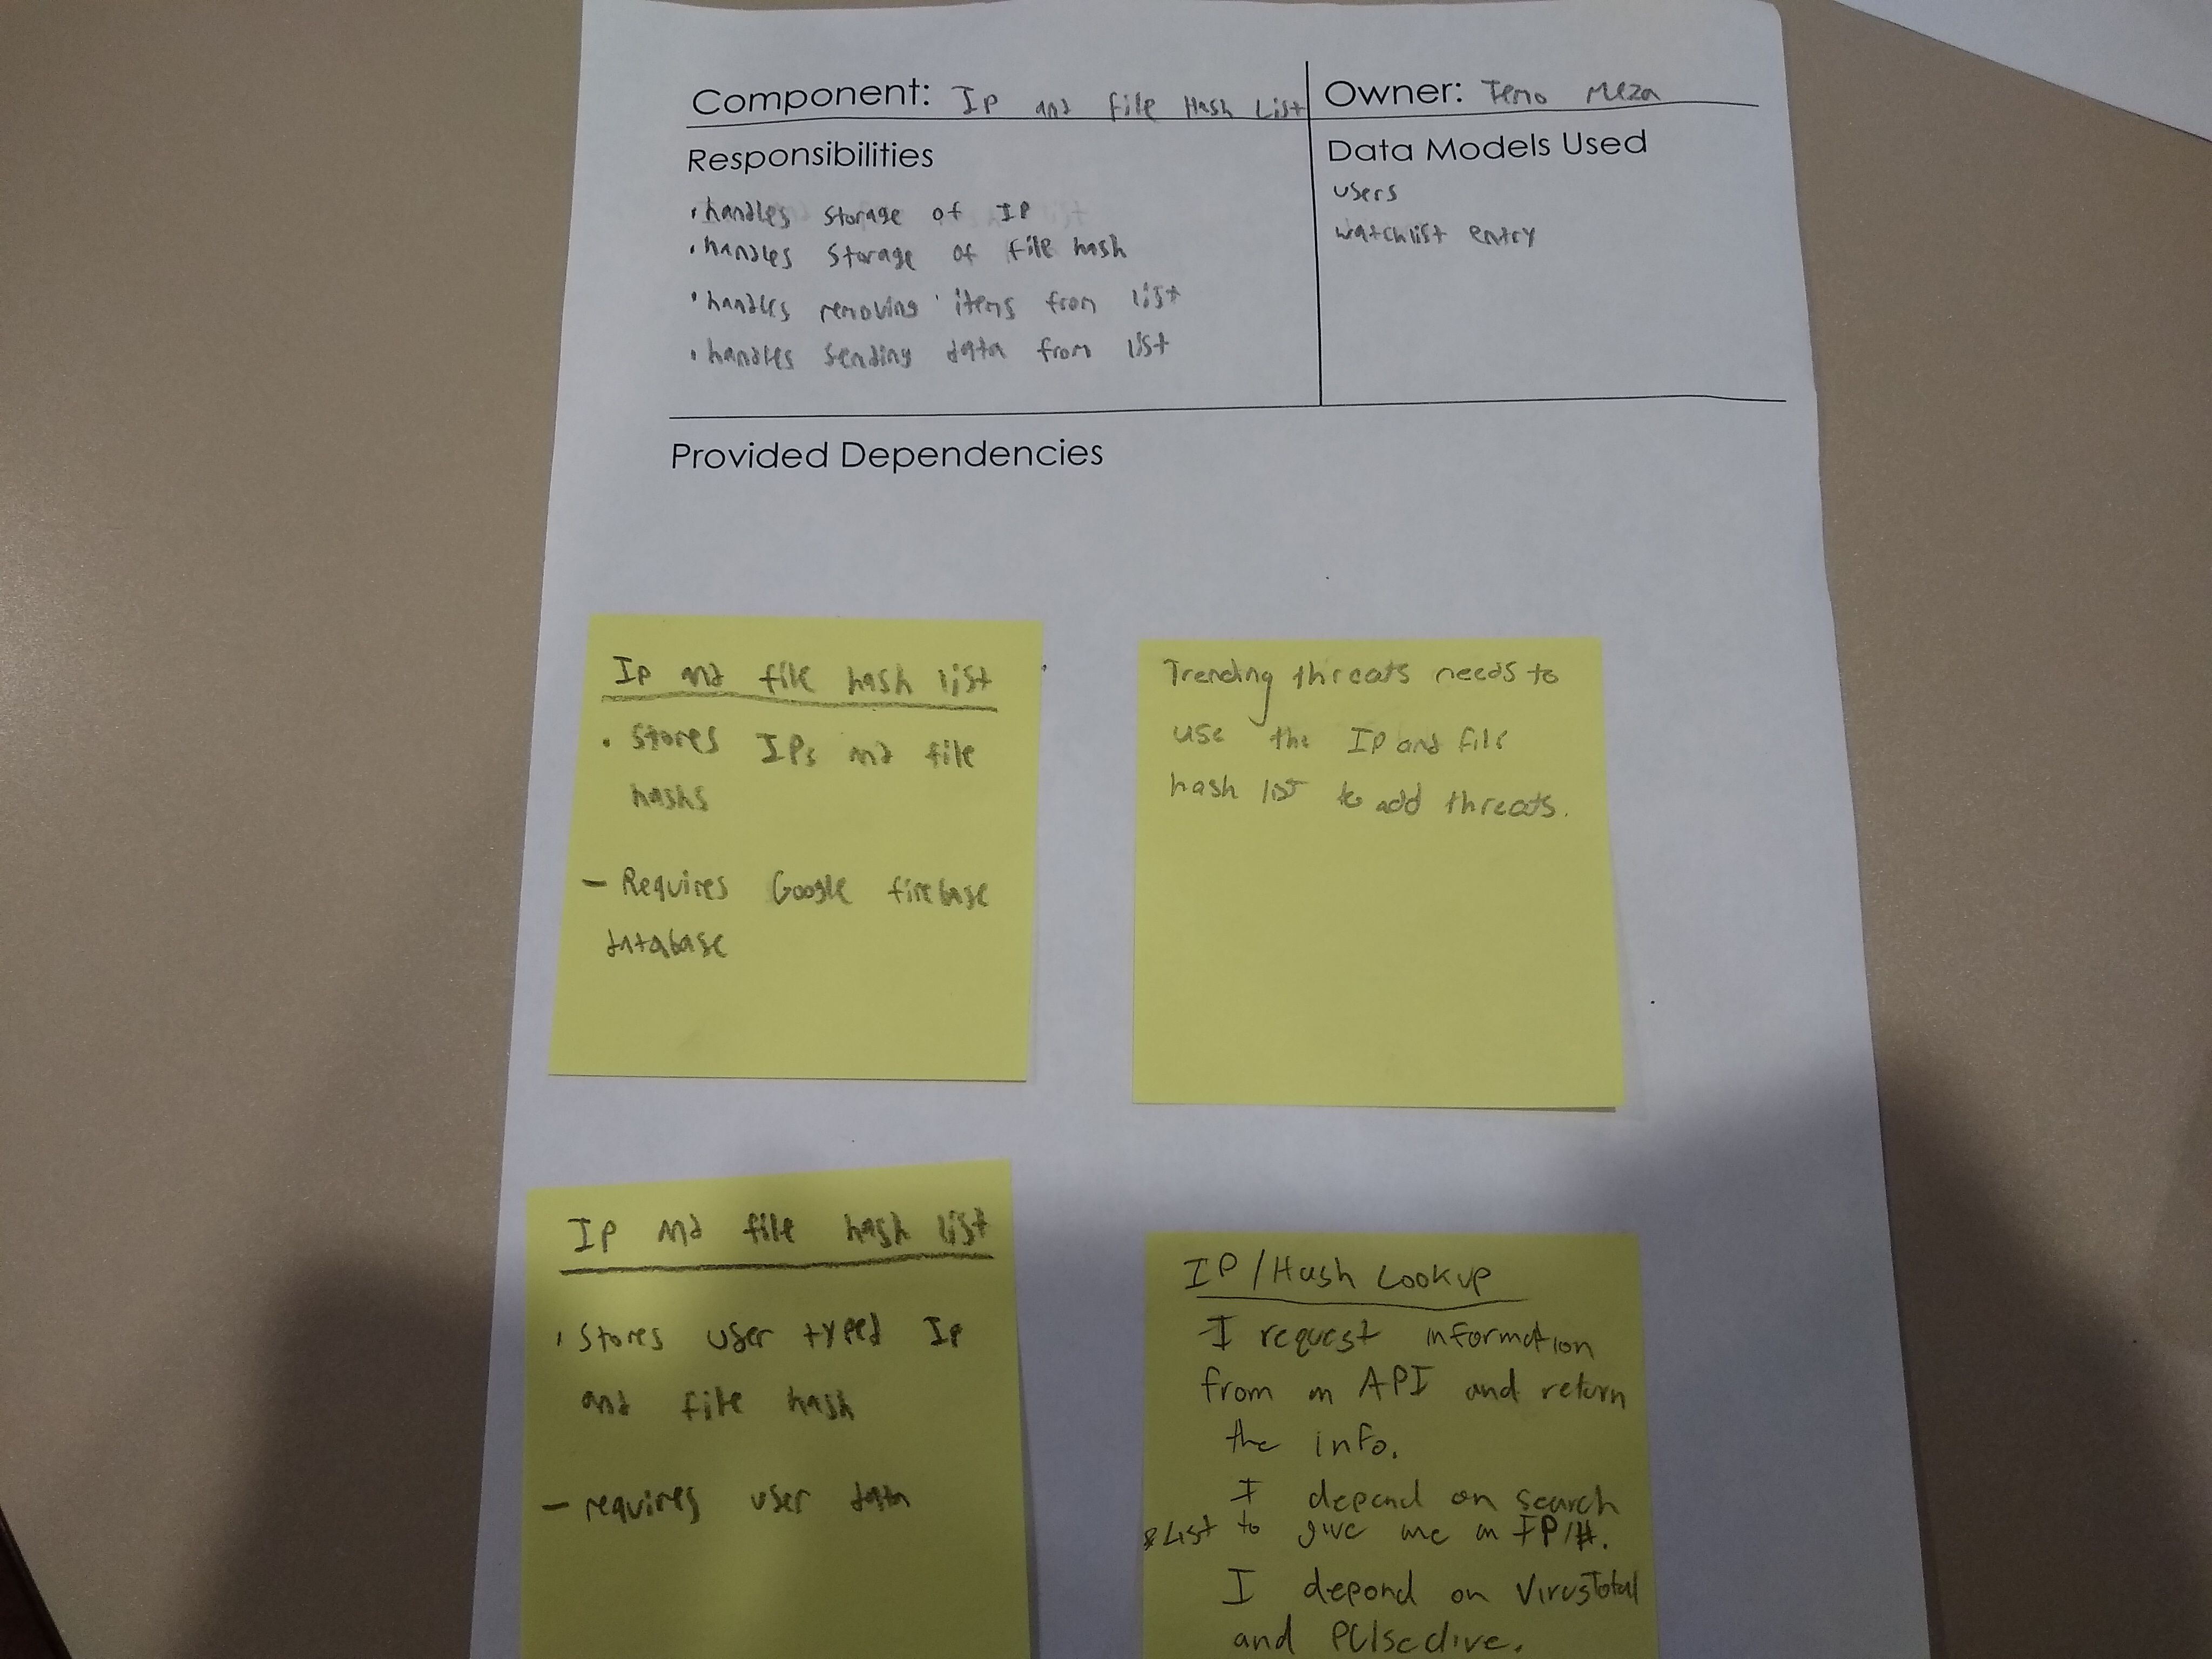 Component: Ip and file Hash List
Owner: Temo Meza
Responsibilities
• handles storage of IP
• handles storage of file hash
• handles removing items from list
• handles sending data from list
Data Models Used
users
watchlist entry
Provided Dependencies
Ip and file hash list
• Stores IPs and file
hashs
- Requires Google firebase
database
Trending threats needs to
use the Ip and file
hash list to add threats.
Ip and file hash list
• Stores user typed Ip
and file hash
- requires user data
IP/Hash Lookup
-I request information
from an API and return
the info.
I depend on search
& List to give me an IP/#.
I depend on VirusTotal
and PUlsedive.